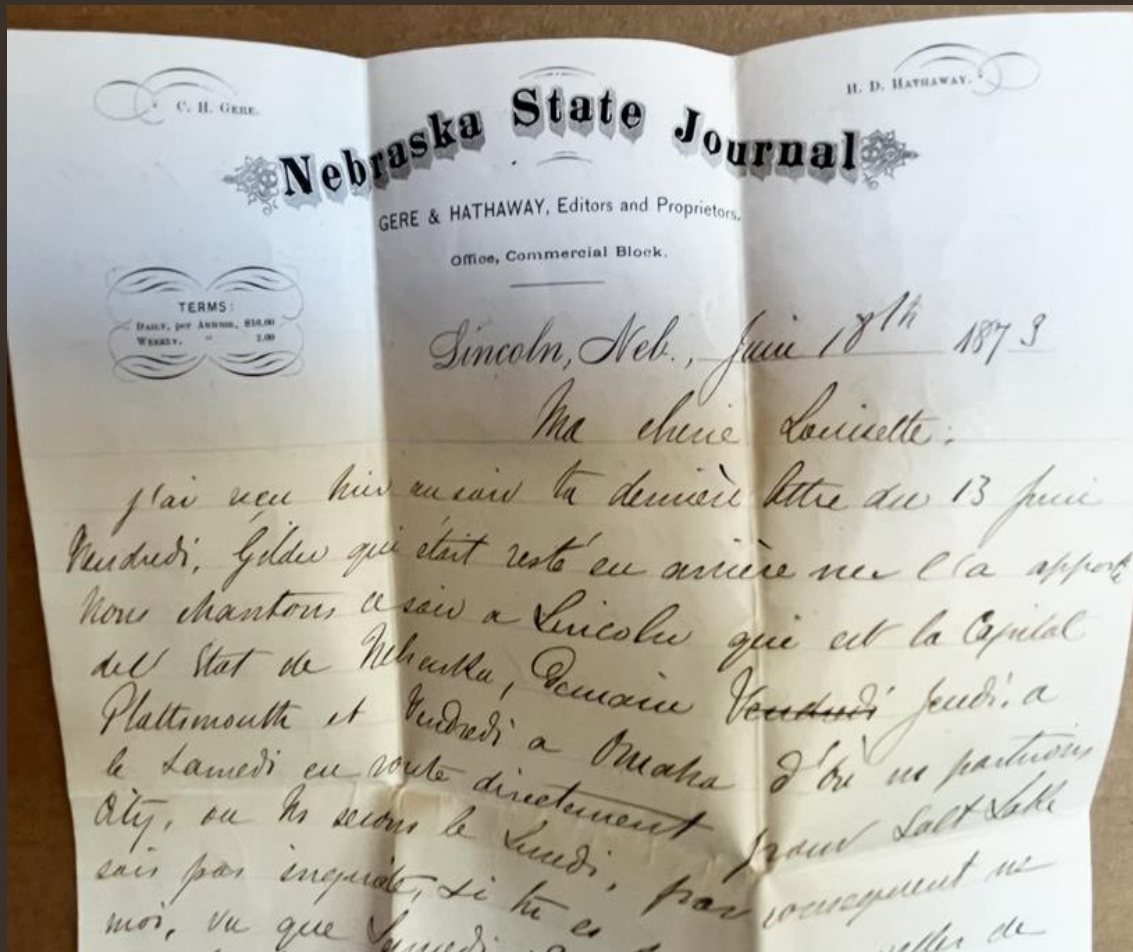 C. H. GERE.
H. D. HATHAWAY.
Nebraska State Journal
GERE & HATHAWAY, Editors and Proprietors.
Office, Commercial Block.
TERMS:
DAILY, per Annum, $10.00
WEEKLY, " 2.00
Lincoln, Neb., Juin 18th 1873
Ma cherie Louisette:
J'ai reçu hier au soir ta derniere lettre du 13 Juin
Vendredi, Gilder qui était resté en arrière me l'a apporté
Nous chantons ce soir a Lincoln qui est la Capital
del Stat de Nebraska, Demain Vendredi Jeudi a
Plattsmouth et Vendredi a Omaha d'où ns partirons
le Samedi en route directement pour Salt Lake
City, ou Ns serons le Lundi, par consequent ne
sois pas inquiète, si tu es
moi, vu que Samedi